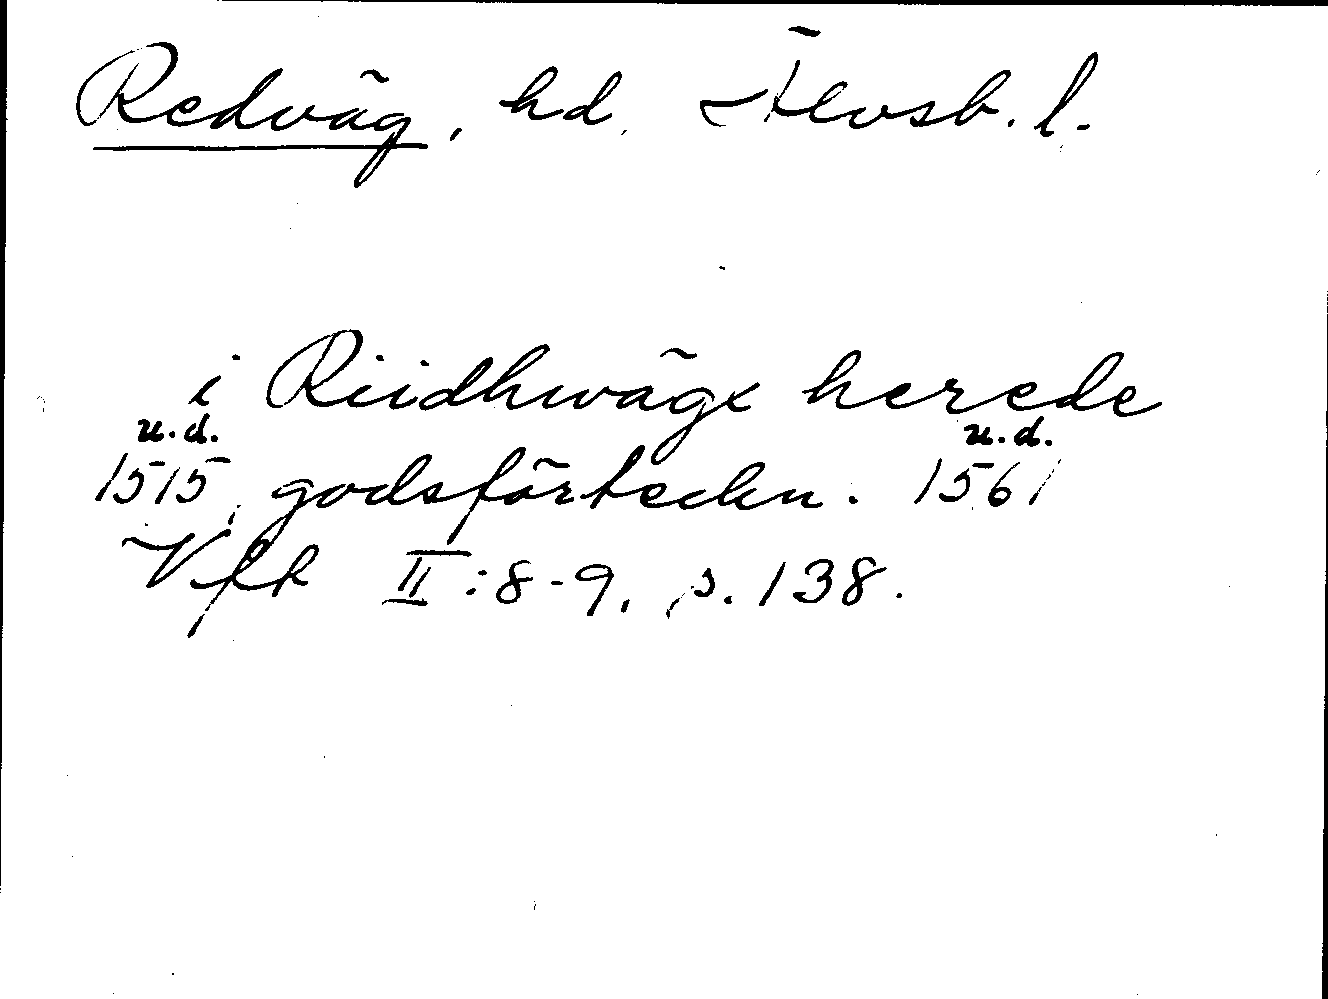 Redväg, hd, Älvsb. l.
i Riidhwäge herede
u.d. u.d.
1515, godsförteckn. 1561
Vfk II:8-9, s. 138.